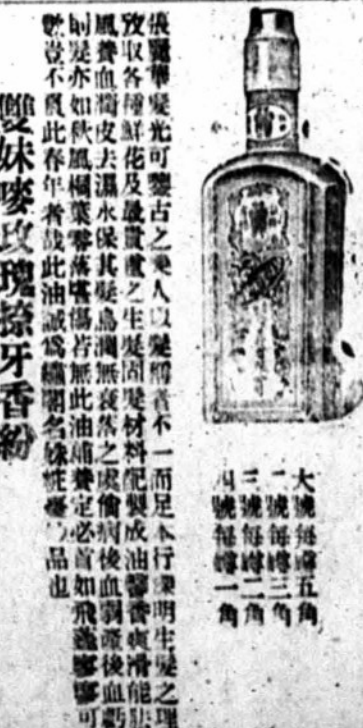 大號每罇五角
二號每罇三角
三號每罇二角
四號每罇一角
張麗華髮光可鑒古之美人以髮稱者不一而足本行深明生髮之理
攷取各種鮮花及最貴重之生髮固髮材料配製成油馨香爽滑能
風養血潤皮去濕水保其髮烏潤無衰落之處倘病後血弱產後血虧
則髮亦如秋風桐葉零落堪傷若無此油補養定必首如飛蓬寥寥可
數豈不負此春年者哉此油誠為繡閣名姝粧檯品也
雙妹嘜玫瑰擦牙香粉